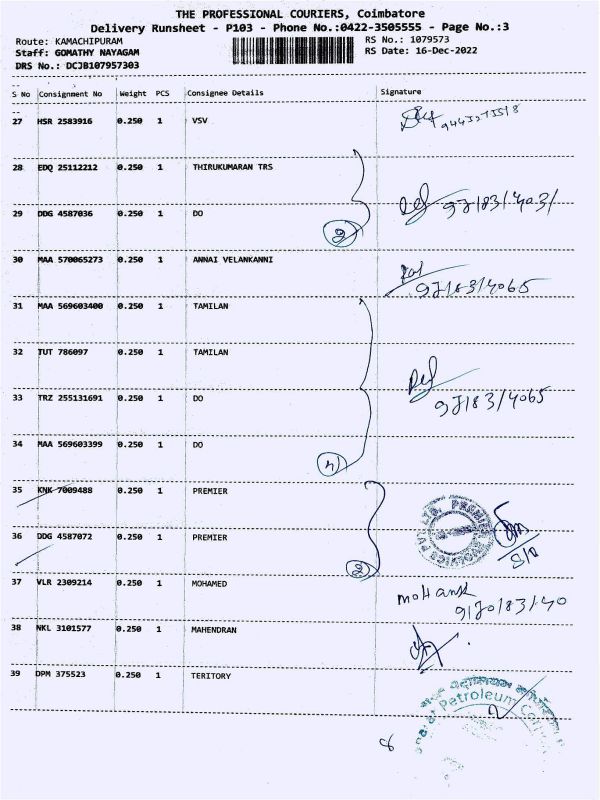 THE PROFESSIONAL COURIERS, Coimbatore
Delivery Runsheet - P103 - Phone No.:0422-3505555 - Page No.:3
Route: KAMACHIPURAM RS No.: 1079573
Staff: GOMATHY NAYAGAM RS Date: 16-Dec-2022
DRS No.: DCJB107957303
S No Consignment No Weight PCS Consignee Details Signature
27 HSR 2583916 0.250 1 VSV
28 EDQ 25112212 0.250 1 THIRUKUMARAN TRS
29 DDG 4587036 0.250 1 DO
2
30 MAA 570065273 0.250 1 ANNAI VELANKANNI
31 MAA 569603400 0.250 1 TAMILAN
32 TUT 786097 0.250 1 TAMILAN
33 TRZ 255131691 0.250 1 DO
34 MAA 569603399 0.250 1 DO
35 KNK 7009488 0.250 1 PREMIER
36 DDG 4587072 0.250 1 PREMIER
2
37 VLR 2309214 0.250 1 MOHAMED
38 NKL 3101577 0.250 1 MAHENDRAN
39 DPM 375523 0.250 1 TERITORY
Petroleum
8